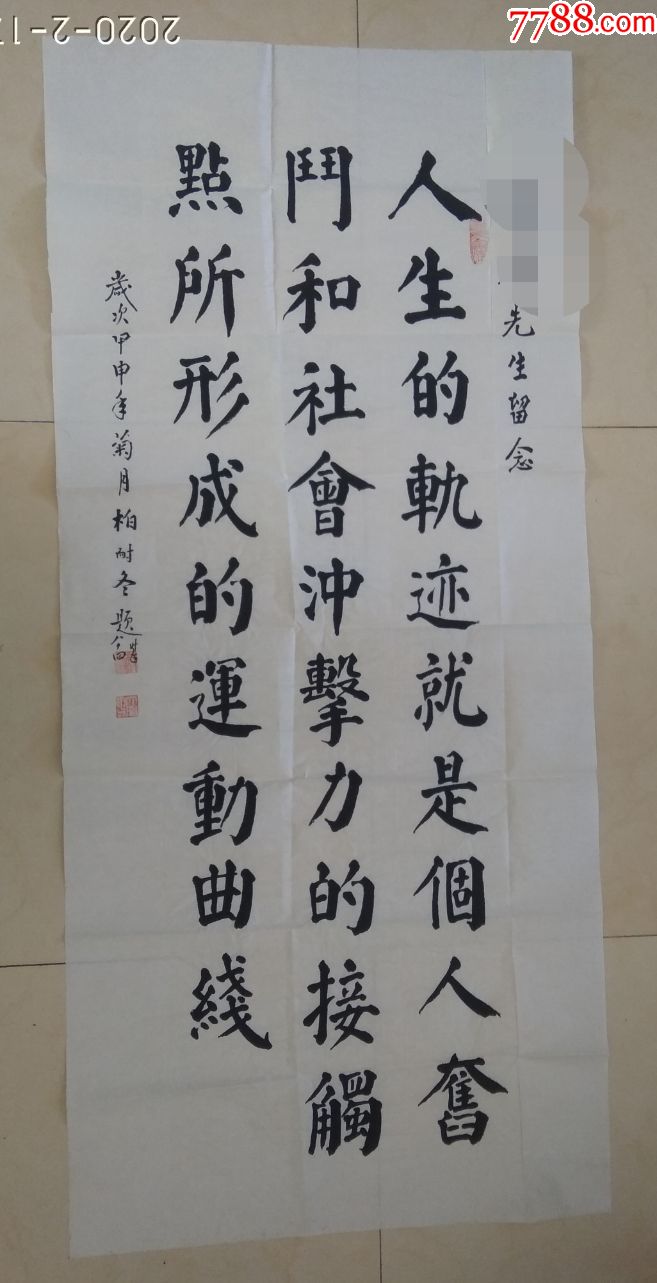 7788.com
2020-2-1
先生留念
人生的軌迹就是個人奮
鬥和社會沖擊力的接觸
點所形成的運動曲綫
歲次甲申年菊月柏耐冬题